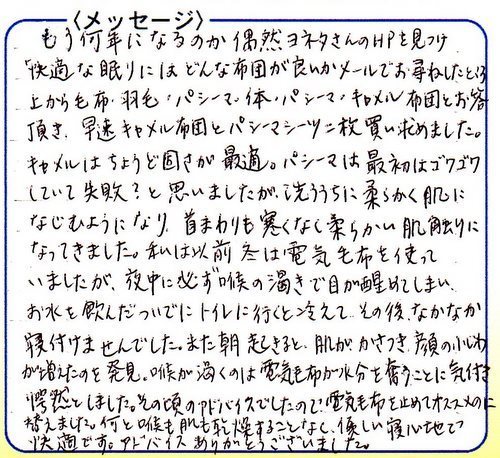 〈メッセージ〉
もう何年になるのか偶然ヨネタさんのHPを見つけ
「快適な眠りにはどんな布団が良いかメールでお尋ねしたところ
上から毛布・羽毛・パシーマ・体・パシーマ・キャメル布団とお答
頂き、早速キャメル布団とパシーマシーツ二枚買い求めました。
キャメルはちょうど固さが最適。パシーマは最初はゴワゴワ
していて失敗?と思いましたが、洗ううちに柔らかく肌に
なじむようになり、首まわりも寒くなく柔らかい肌触りに
なってきました。私は以前冬は電気毛布を使って
いましたが、夜中に必ず喉の渇きで目が醒めてしまい
お水を飲んだついでにトイレに行くと冷えて、その後、なかなか
寝付けませんでした。また朝起きると、肌がかさつき、顔の小じわ
が増えたのを発見。喉が渇くのは電気毛布が水分を奪うことに気付き
愕然としました。その頃のアドバイスでしたので、電気毛布を止めてオススメのに
替えました。何と喉も肌も乾燥することなく、優しい寝心地で
快適です。アドバイスありがとうございました。